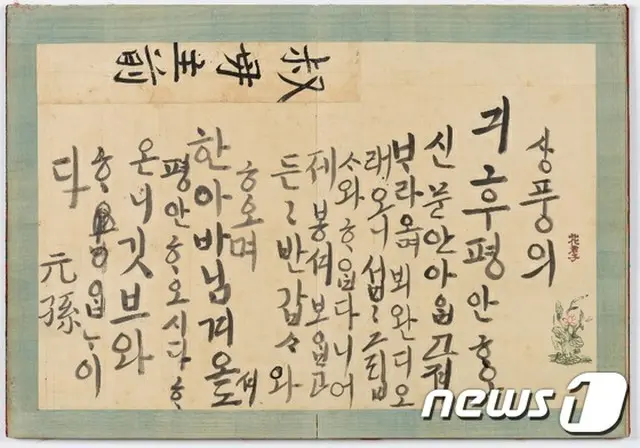 叔母主前
상풍의
긔후평안ᄒᆞ오
신문안아ᄋᆞᆸ고져
ᄇᆞ라오며뵈완디오
래오니섭〻그립
ᄉᆞ와ᄒᆞᄋᆞᆸ다니어
제봉셔보ᄋᆞᆸ고
든〻반갑ᄉᆞ와
ᄒᆞ오며
한아바님겨오셔도
평안ᄒᆞ오시다ᄒᆞ
온니깃브와
ᄒᆞᄋᆞᆸᄂᆞ이
다
元孫
news1